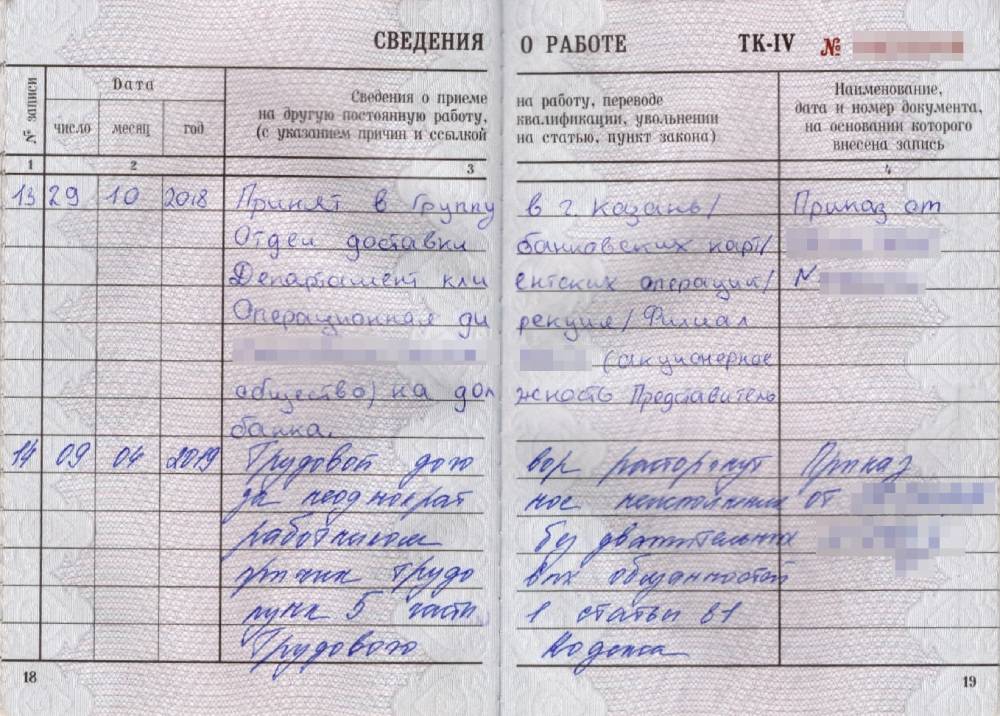 СВЕДЕНИЯ О РАБОТЕ ТК-IV №
№ записи
Дата
число месяц год
Сведения о приеме на работу, переводе
на другую постоянную работу, квалификации, увольнении
(с указанием причин и ссылкой на статью, пункт закона)
Наименование,
дата и номер документа,
на основании которого
внесена запись
1 2 3 4
13 29 10 2018 Принят в Группу в г. Казань/ Приказ от
Отдел доставки банковских карт/
Департамент клиентских операций/ N
Операционная дирекция/Филиал
(акционерное
общество) на должность Представитель
банка.
14 09 04 2019 Трудовой договор расторгнут Приказ
за неоднократное неисполнение от
работником без уважительных
причин трудовых обязанностей
пункт 5 части 1 статьи 81
Трудового Кодекса
18 19